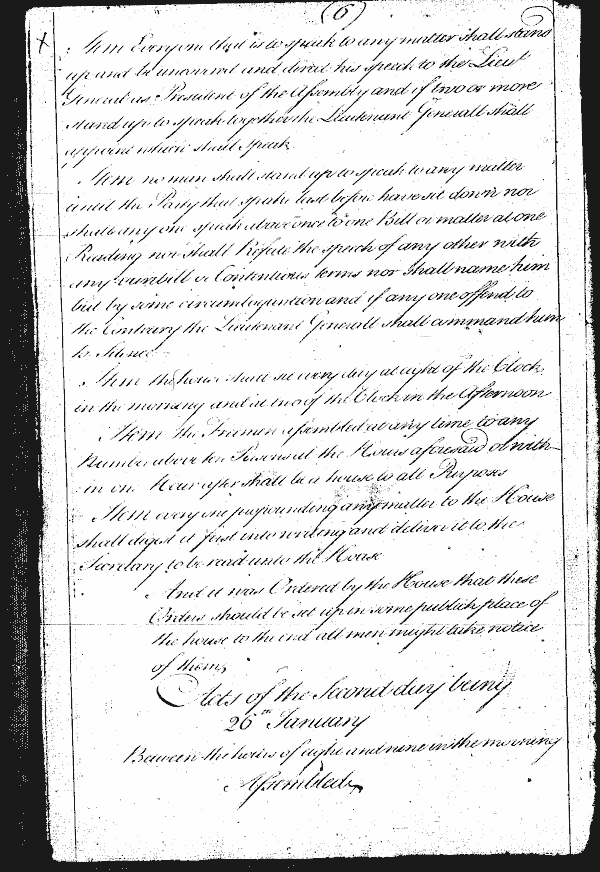 (6)
Item Everyone that is to speak to any matter shall stand
up and be uncovered and direct his speech to the Lieut
Generall as President of the Assembly and if two or more
stand up to speak together the Lieutenant Generall shall
appoint which shall speak
Item no man shall stand up to speak to any matter
untill the Party that spake last before have sit down nor
shall any one speak above once to one Bill or matter at one
Reading nor shall Refute the speech of any other with
any or Contentious terms nor shall name him
but by some circumloquution and if any one offend to
the contrary the Lieutenant Generall shall command him
to Silence
Item the house shall sit every day at eight of the Clock
in the morning and at two of the Clock in the Afternoon
Item the Freemen assembled at any time to any
Number above ten Persons at the Hours aforesaid or with
in one Hour after shall be a house to all Purposes
Item every one propounding any matter to the House
shall digest it first into writing and deliver it to the
Secretary to be read unto the House
And it was Ordered by the House that these
Orders should be set up in some publick place of
the house to the end all men might take notice
of them
Acts of the Second day being
26th January
Between the hours of eight and nine in the morning
Assembled